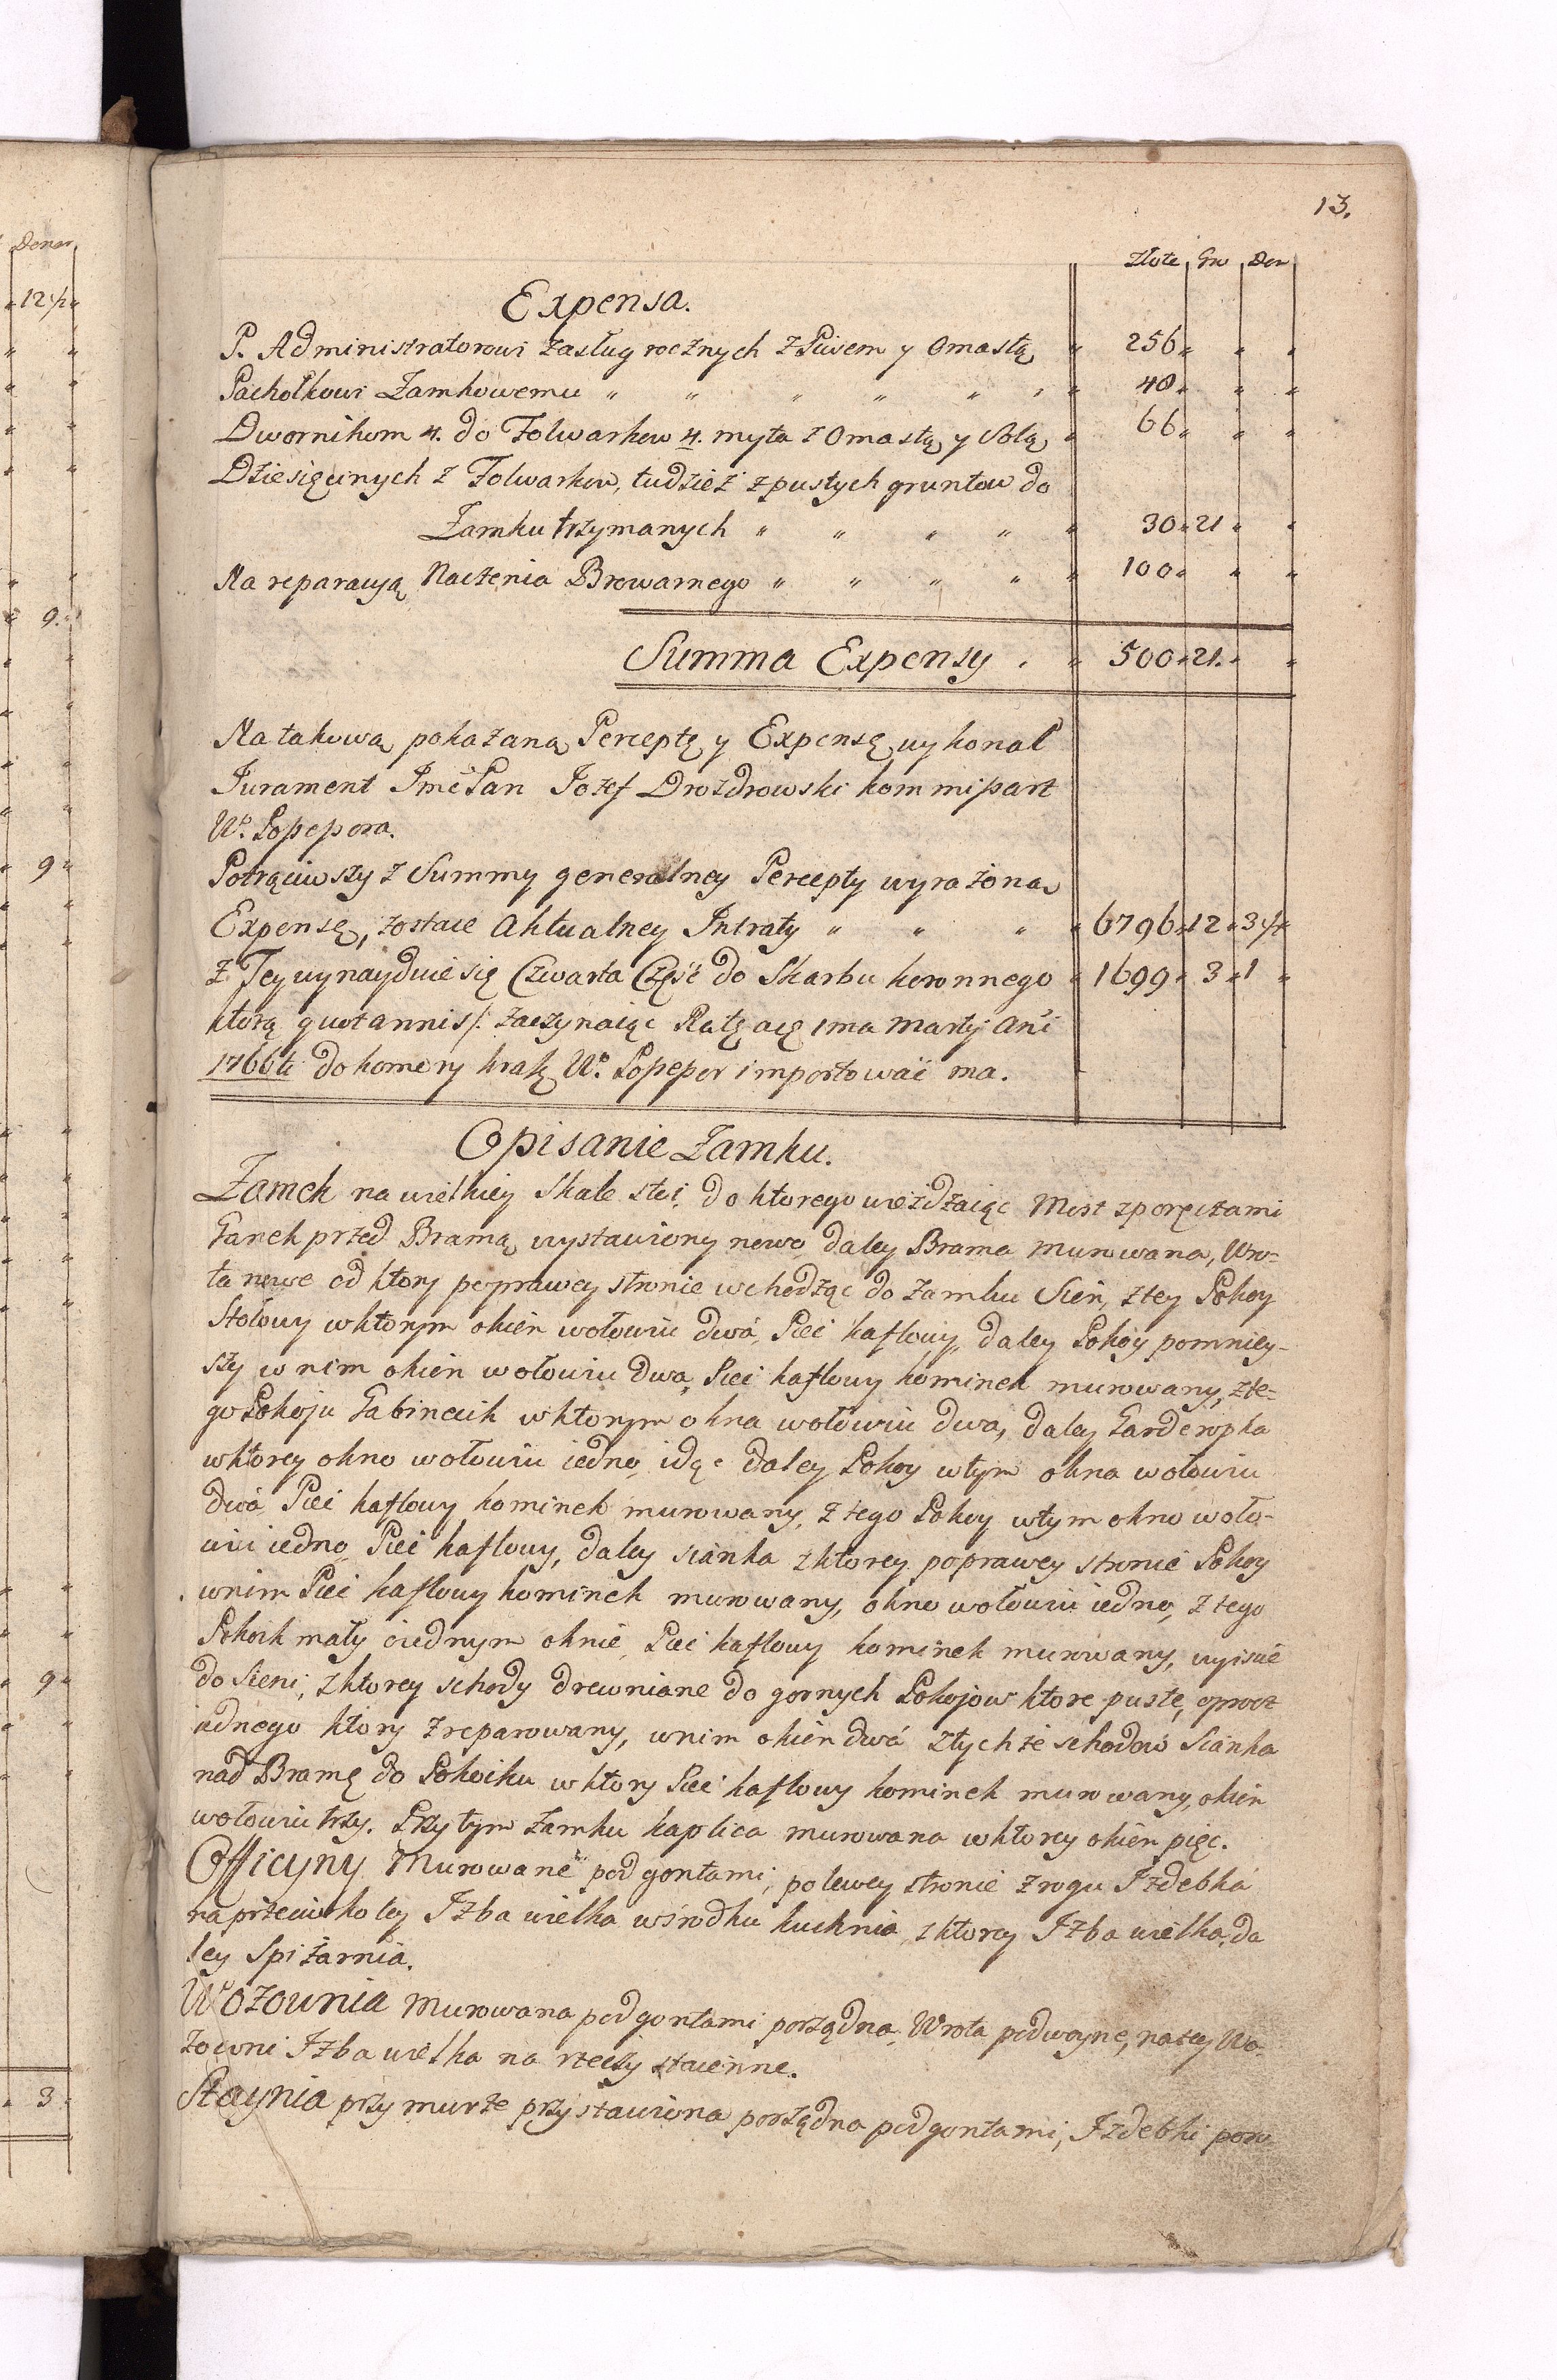 13.
Złote Gro Den
Expensa.
P. Administratorowi zasług rocznych z Piwem y Omastą " 256 " " "
Pachołkowi Zamkowemu " " " " " " 48 " " "
Dwornikom 4. do Folwarkow 4. myta z Omastą y Solą " 66 " " "
Dziesięcinych z Folwarkow, tudzież z pustych gruntow do
Zamku trzymanych " " " " " 30 " 21 " "
Na reparacyą Naczenia Browarnego " " " " " 100 " " "
Summa Expensy . " 500 " 21 " "
Na takową pokazaną Perceptę y Expensę wykonał
Jurament Jmć Pan Jozef Drozdrowski kommissarz
Wo. Possessora.
Potrąciwszy z Summy generalney Percepty wyrażoną
Expensę, zostaie Aktualney Intraty " " " " 6796 " 12 " 3 "
z Tey wynayduie się Czwarta Część do Skarbu koronnego " 1699 " 3 " 1 "
ktorą quotannis /: zaczynaiąc Ratę a 1ma Martij Ani
1766ti do komory krak. Wo. Possessor importować ma.
Opisanie Zamku.
Zamek na wielkiey Skale stoi, do ktorego wieżdżaiąc Most z poręczami
Ganek przed Bramą wystawiony nowo, daley Brama murowana, Wro-
ta nowe od ktory po prawey stronie wchodząc do Zamku Sień, z tey Pokoy
Stołowy w ktorym okien wołowiu dwá, Piec kaflowy, daley Pokóy pomniey-
szy w nim okien w ołowiu dwa, Piec kaflowy kominek murowany, z te-
go Pokoju Gabinecik w ktorym okna wołowiu dwa, daley Garderopka
w ktorey okno wołowiu iedno, idąc daley Pokoy w tym okna wołowiu
dwá Piec kaflowy kominek murowany, z tego Pokoy w tym okno woło-
wiu iedno Piec kaflowy, daley sianka z ktorey po prawey stronie Pokoy
w nim Piec kaflowy kominek murowany, okno wołowiu iedno, z tego
Pokoik mały o iednym oknie, Piec kaflowy kominek murowany, wyiscie
do Sieni, z ktorey schody drewniane do gornych Pokojow ktore puste, oprocz
iednego ktory zreparowany, w nim okien dwá z tychże schodow Sianka
nad Bramę do Pokoiku w ktory Piec kaflowy kominek murowany, okien
wołowiu trzy. Przy tym Zamku kaplica murowana w ktorey okien pięc.
Officyny Murowane pod gontami, po lewey stronie z rogu Izdebka
naprzeciwko tey Izba wielka wśrodku kuchnia, z ktorey Izba wielka, da
ley Spiżarnia.
Wozownia Murowana pod gontami porządna, Wrota podwoyne, na tey Wo-
zowni Izba wielka na rzeczy staienne.
Staynia przy murze przystawiona porządna pod gontami, Izdebki
Denar
12 1/2
9.
9
9
3